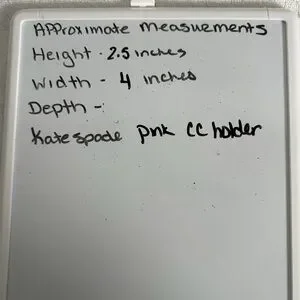 Approximate Measurements
Height - 2.5 inches
Width - 4 inches
Depth -
Kate spade pink CC holder